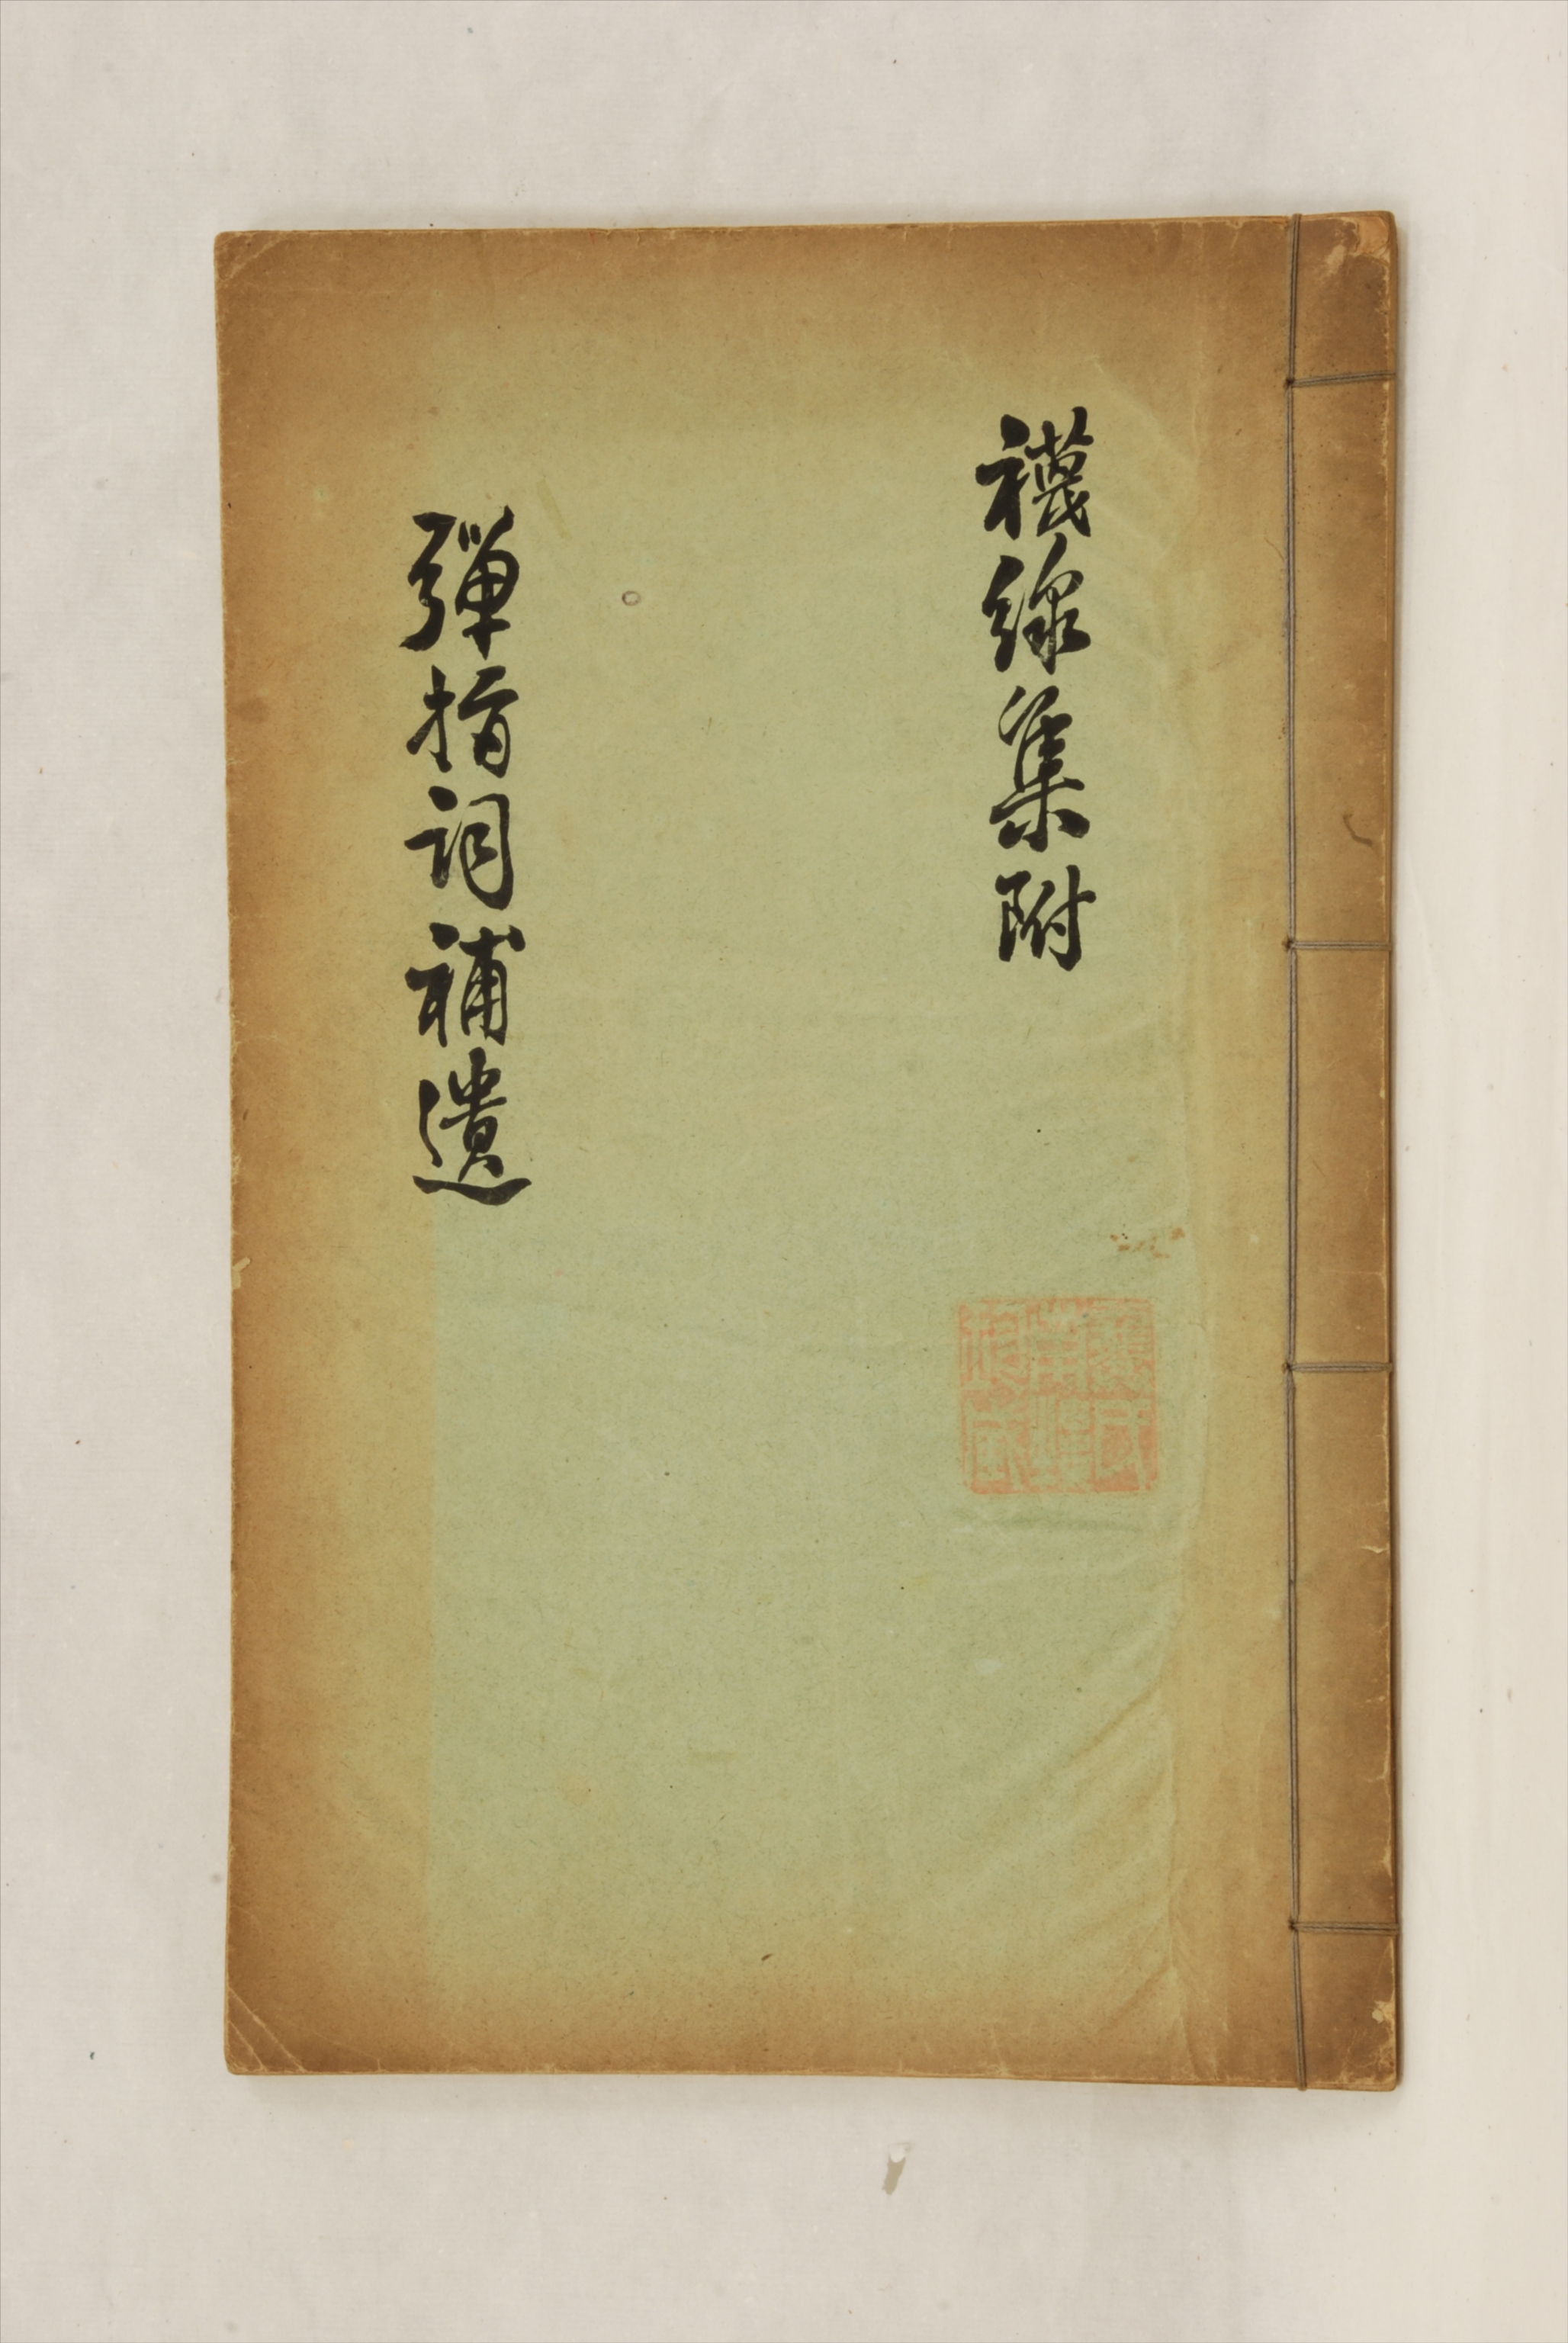 襪線集附
彈指詞補遺